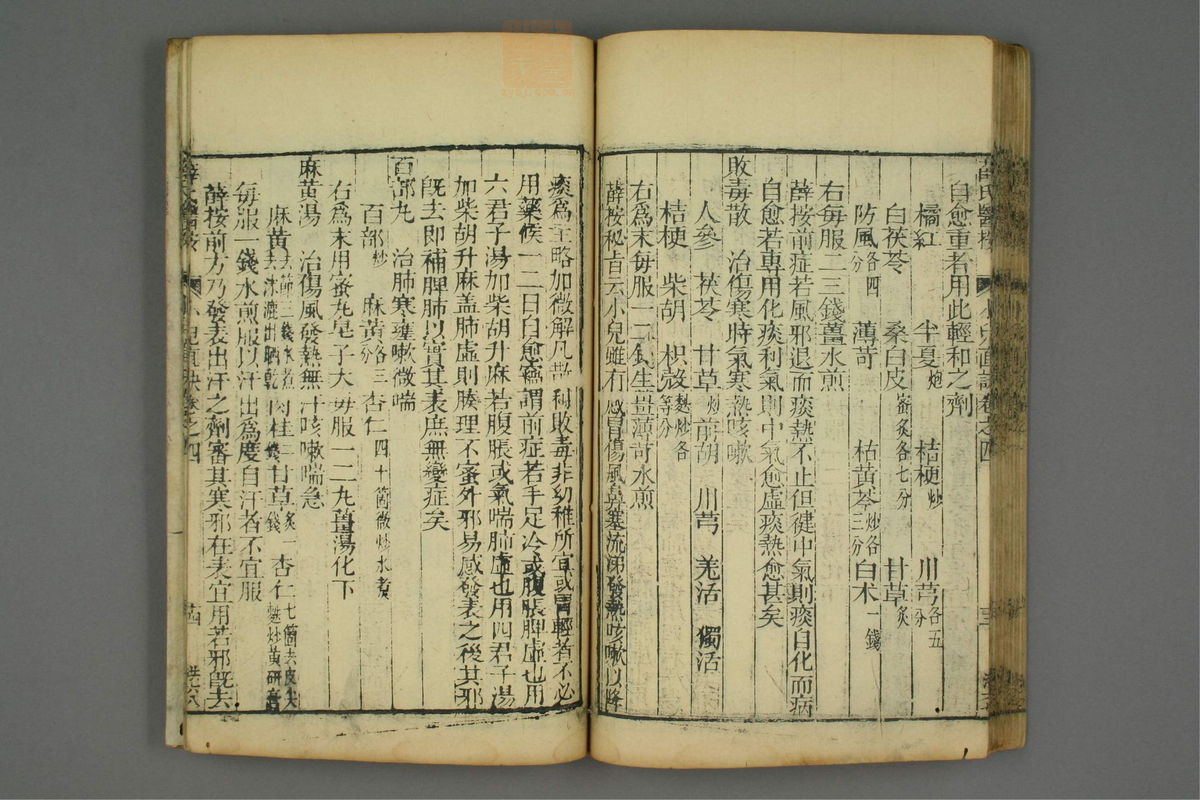 自愈重者用此輕和之劑
橘紅 半夏炮 桔梗炒 川芎各五分
白茯苓 桑白皮蜜炙各七分 甘草炙
防風各四分 薄苛 枯黃芩炒各三分 白术一錢
右每服二三錢薑水煎
薛按前症若風邪退而痰熱不止但健中氣則痰自化而病
自愈若專用化痰利氣則中氣愈虛痰熱愈甚矣
敗毒散 治傷寒時氣寒熱咳嗽
人參 茯苓 甘草炒 前胡 川芎 羌活 獨活
桔梗 柴胡 枳殼麩炒各等分
右為末每服一二錢生薑薄苛水煎
薛按秘旨云小兒雖有感冒傷風鼻塞流涕發熱咳嗽以降
痰為主略加微解凡散利敗毒非幼稚所宜或冒輕者不必
用藥候一二日自愈竊謂前症若手足冷或腹脹脾虛也用
六君子湯加柴胡升麻若腹脹或氣喘肺虛也用四君子湯
加柴胡升麻盖肺虛則腠理不蜜外邪易感發表之後其邪
既去即補脾肺以實其表庶無變症矣
百部丸 治肺寒壅嗽微喘
百部炒 麻黃各三分 杏仁四十箇微炒水煮
右為末用蜜丸皂子大每服一二丸薑湯化下
麻黃湯 治傷風發熱無汗咳嗽喘急
麻黃去節三錢水煮去沫漉出晒乾 肉桂二錢 甘草炙一錢 杏仁七箇去皮尖麩炒黃研膏
每服一錢水煎服以汗出為度自汗者不宜服
薛按前方乃發表出汗之劑審其寒邪在表宜用若邪既去